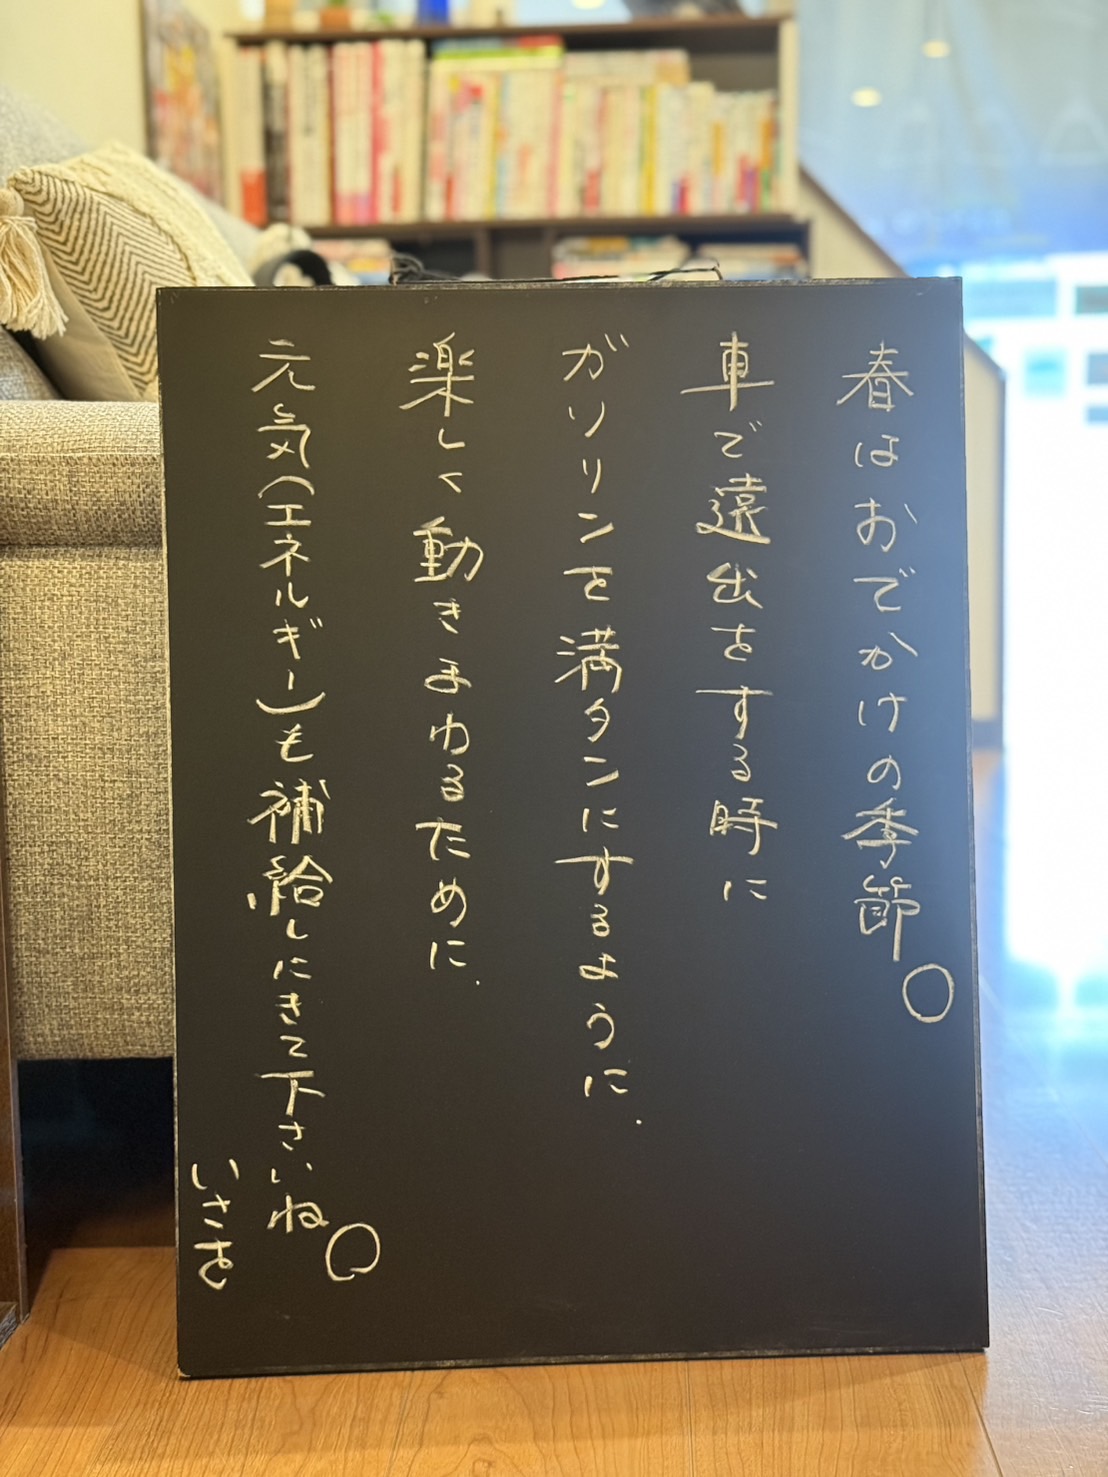 春はおでかけの季節。
車で遠出をする時に
ガソリンを満タンにするように.
楽しく動きまわるために.
元気(エネルギー)も補給しにきて下さいね。
いさお